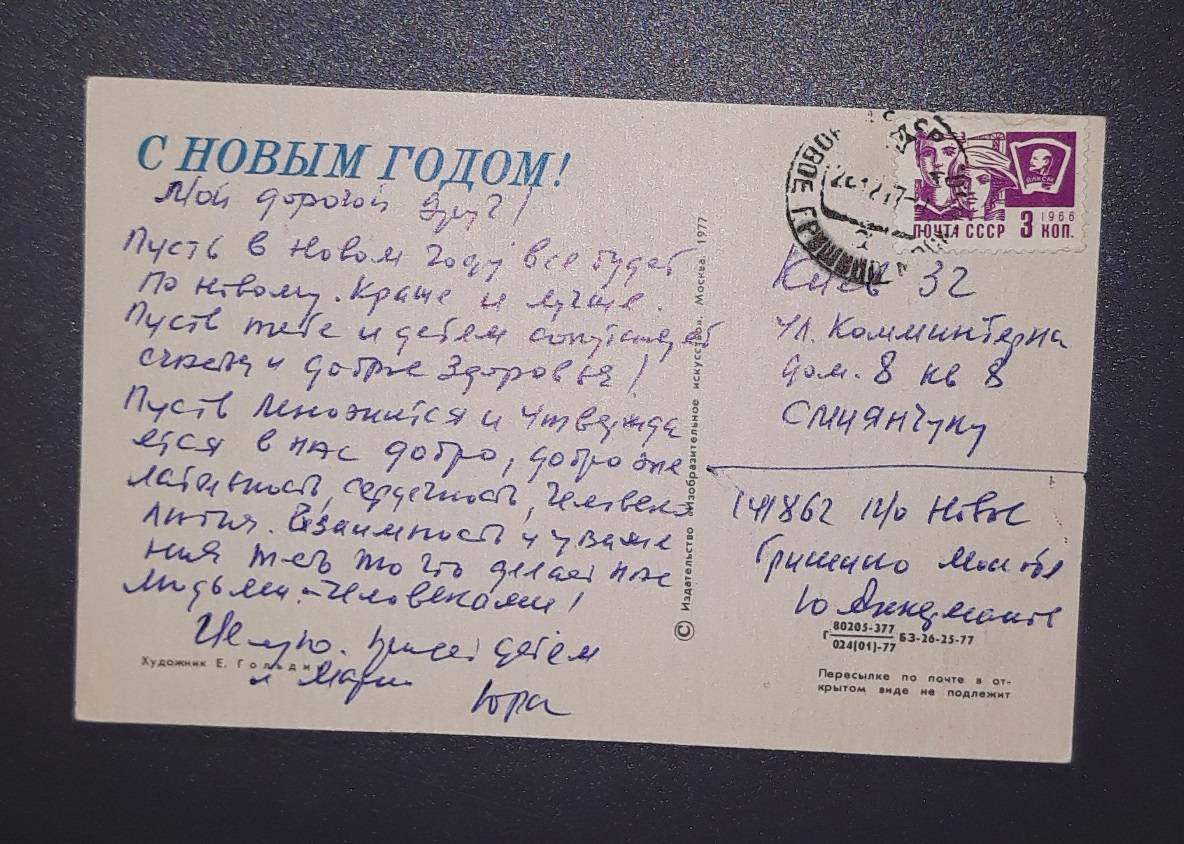 С НОВЫМ ГОДОМ!
Мой дорогой друг!
Пусть в новом году все будет
по новому. Краше и лучше.
Пусть тебе и детям сопутствует
счастье и доброе здоровье!
Пусть множится и утвержда
ется в нас добро, доброже
лательность, сердечность, человеко
любия. Взаимность и уваже
ния
то что делает нас
людьми - человеками!
Целую. Привет детям
и Марии
Юра
Художник Е. Гольдин
© Издательство «Изобразительное искусство». Москва. 1977
НОВОЕ ГРИШИНО
ВЛКСМ
1966
ПОЧТА СССР 3 КОП.
Киев 32
ул. Коминтерна
дом. 8 кв 8
141862 п/о Новое
Гришино Москов
Ю
Г 80205-377 БЗ-26-25-77
024(01)-77
Пересылке по почте в от-
крытом виде не подлежит